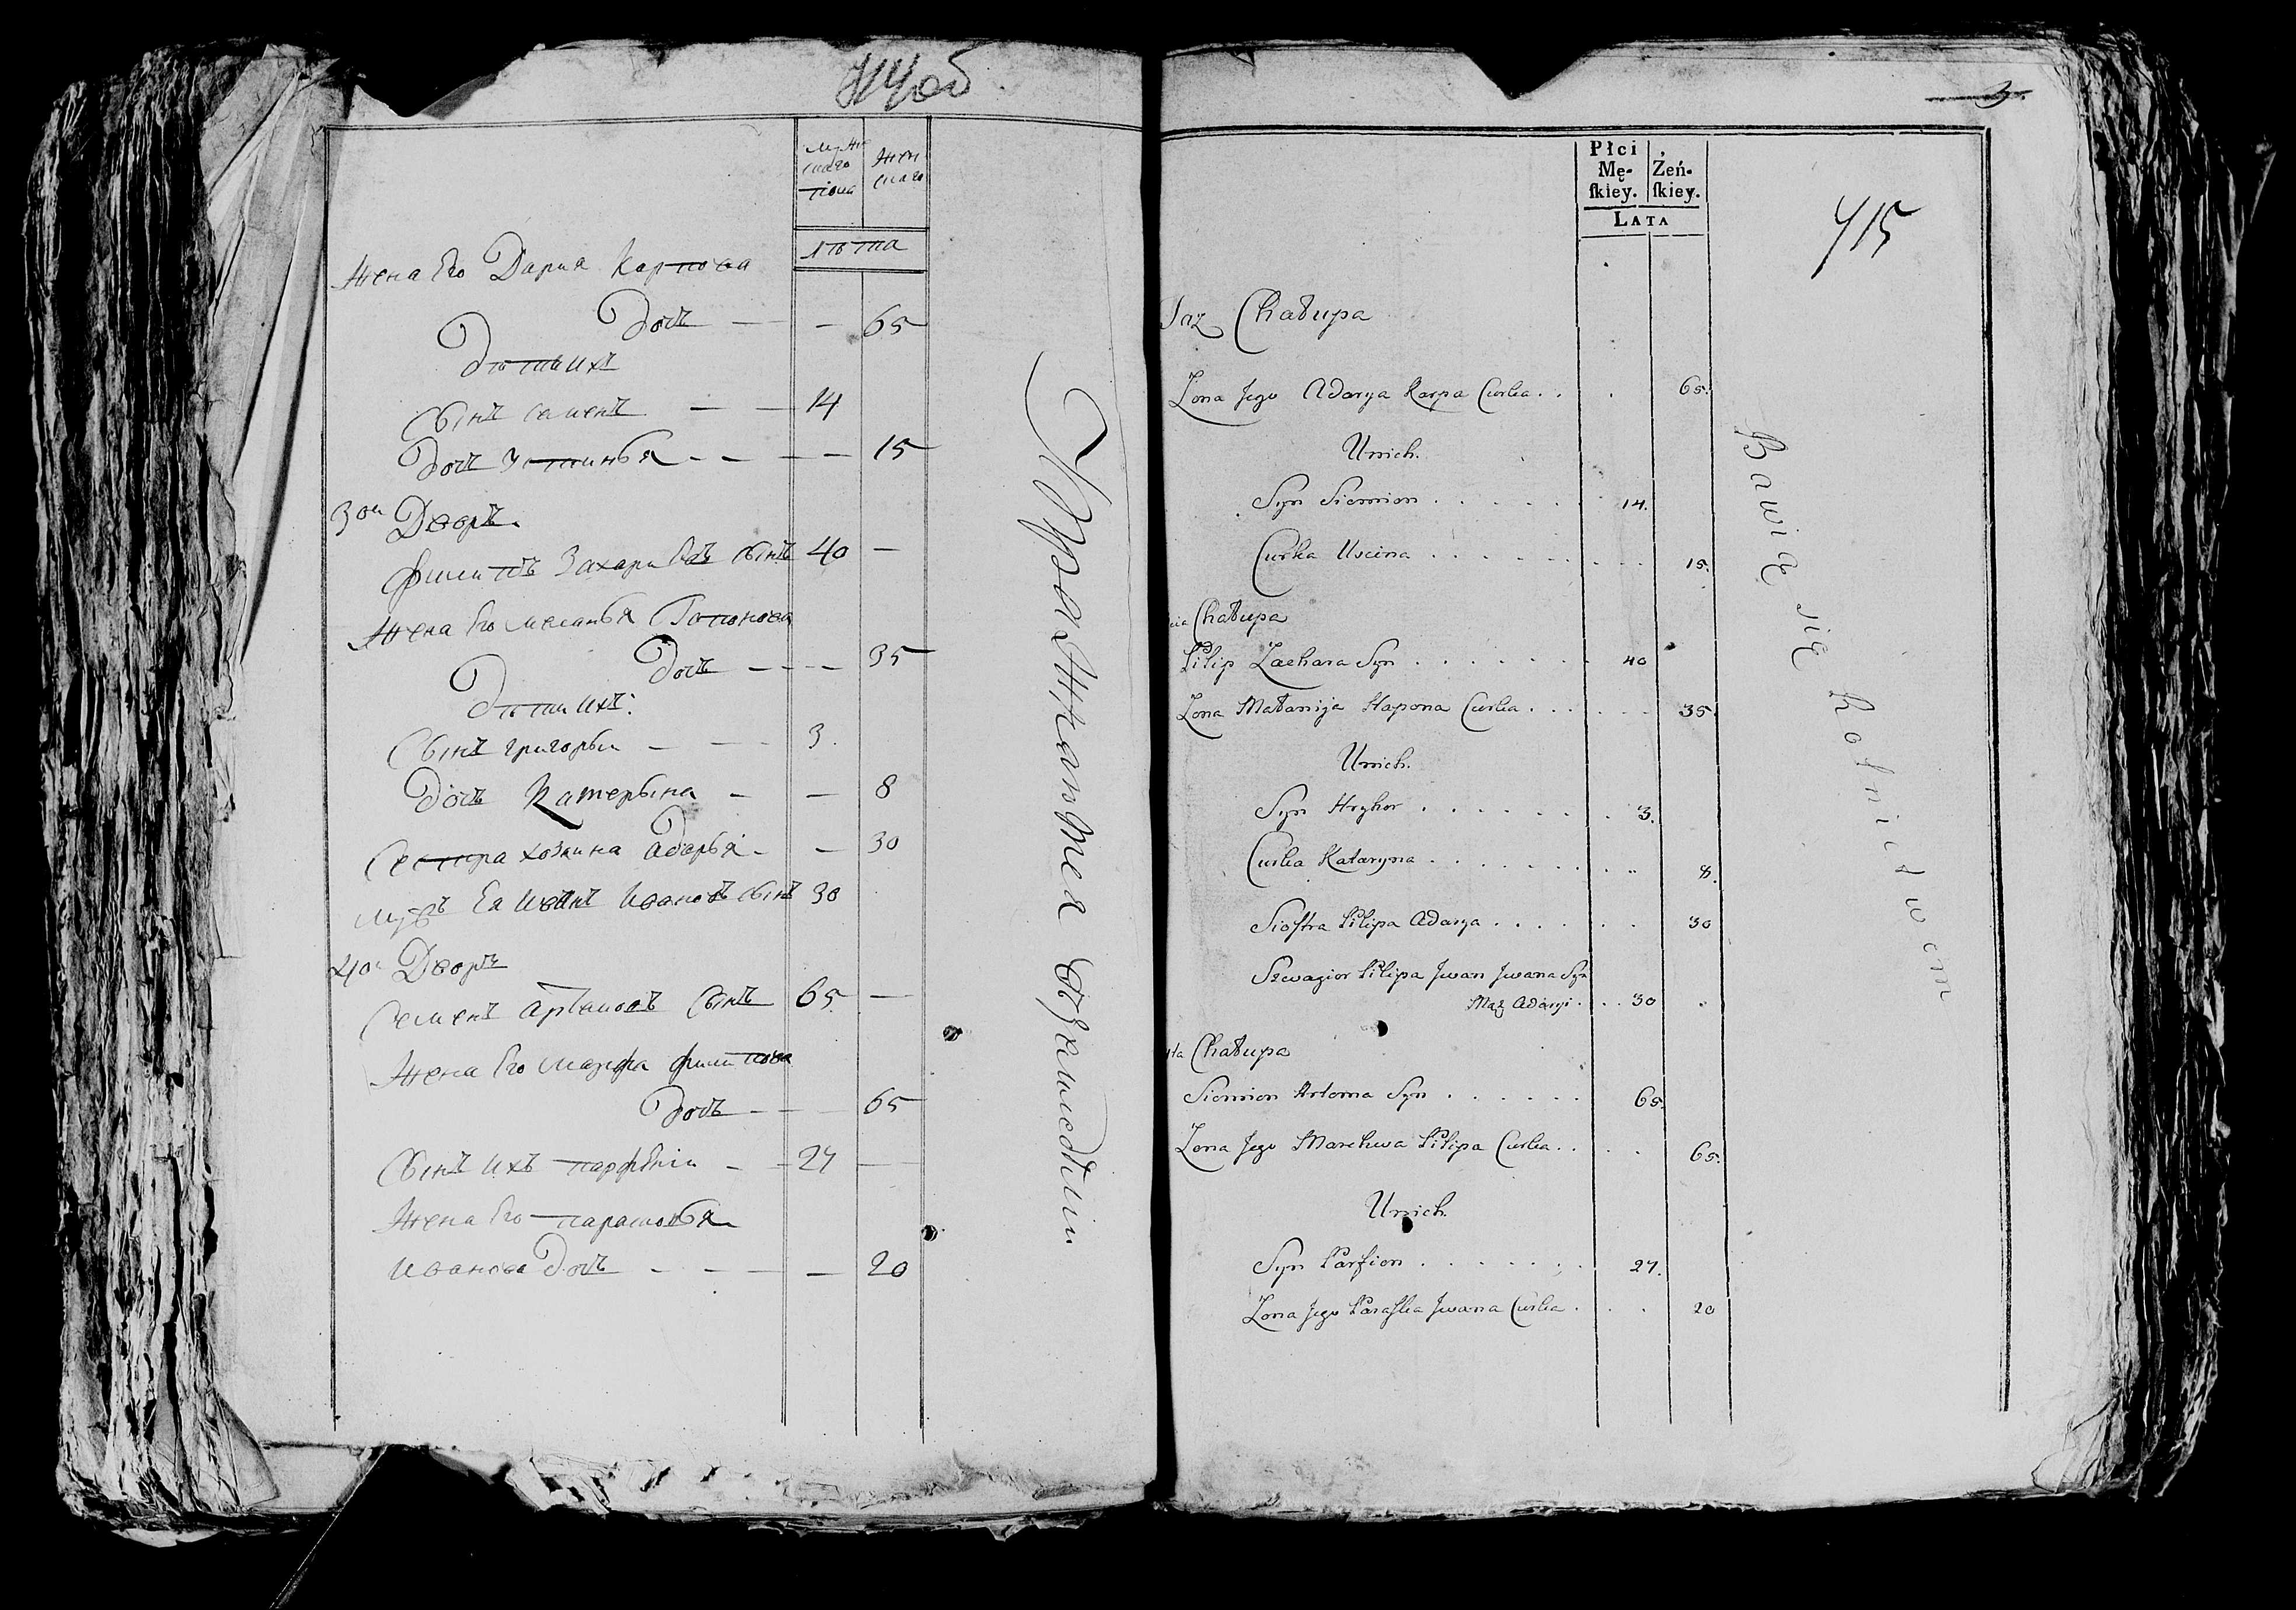 414об
Мужескаго пола
Женскаго
Лѣта
Жена Его Дария Карпова
Дочь — — 65
Дѣти ихъ
Сынъ Семенъ — — 14
Дочь Устинья — — — 15
3ой Дворъ
Филипъ Захаривъ Сынъ 40 —
Жена Его Меланья Гапонова
Дочь — — — 35
Дѣти ихъ:
Сынъ григорьи — — 3.
Дочь Катерына — — 8
Сестра хозяина Адарья — — 30
Мужъ Ея Иванъ Ивановъ Сынъ 30
4ой Дворъ
Семенъ Артемовъ Сынъ 65 —
Жена Его Марфа филипова
Дочь — — 65
Сынъ ихъ парфѣнiи — — 27 —
Жена Его парасковья
Иванова Дочь — — — 20
Упражняются
3.
415
Płci Mę-skiey.
Żeń-skiey.
LATA
Chałupa
Zona Jego Adarya Karpa Curka . . . 65.
U nich.
Syn Siemion . . . . . . 14.
Curka Uscina . . . . . . . . 15.
Chałupa
Pilip Zachara Syn . . . . . . . 40
Zona Małanija Hapona Curka . . . . . . 35.
U nich.
Syn Hryhor . . . . . . . 3.
Curka Kataryna . . . . . . . . . 8.
Siostra Pilipa Adarya . . . . . . 30
Szwagior Pilipa Jwan Jwana Syn
Mąż Adaryi . . . 30 .
ta Chałupa
Siemion Artoma Syn . . . . . . 65.
Zona Jego Marchwa Pilipa Curka . . . . 65.
U nich.
Syn Parfion . . . . . . 27.
Zona Jego Paraska Jwana Curka . . . 20
Bawią się Rolnictwem